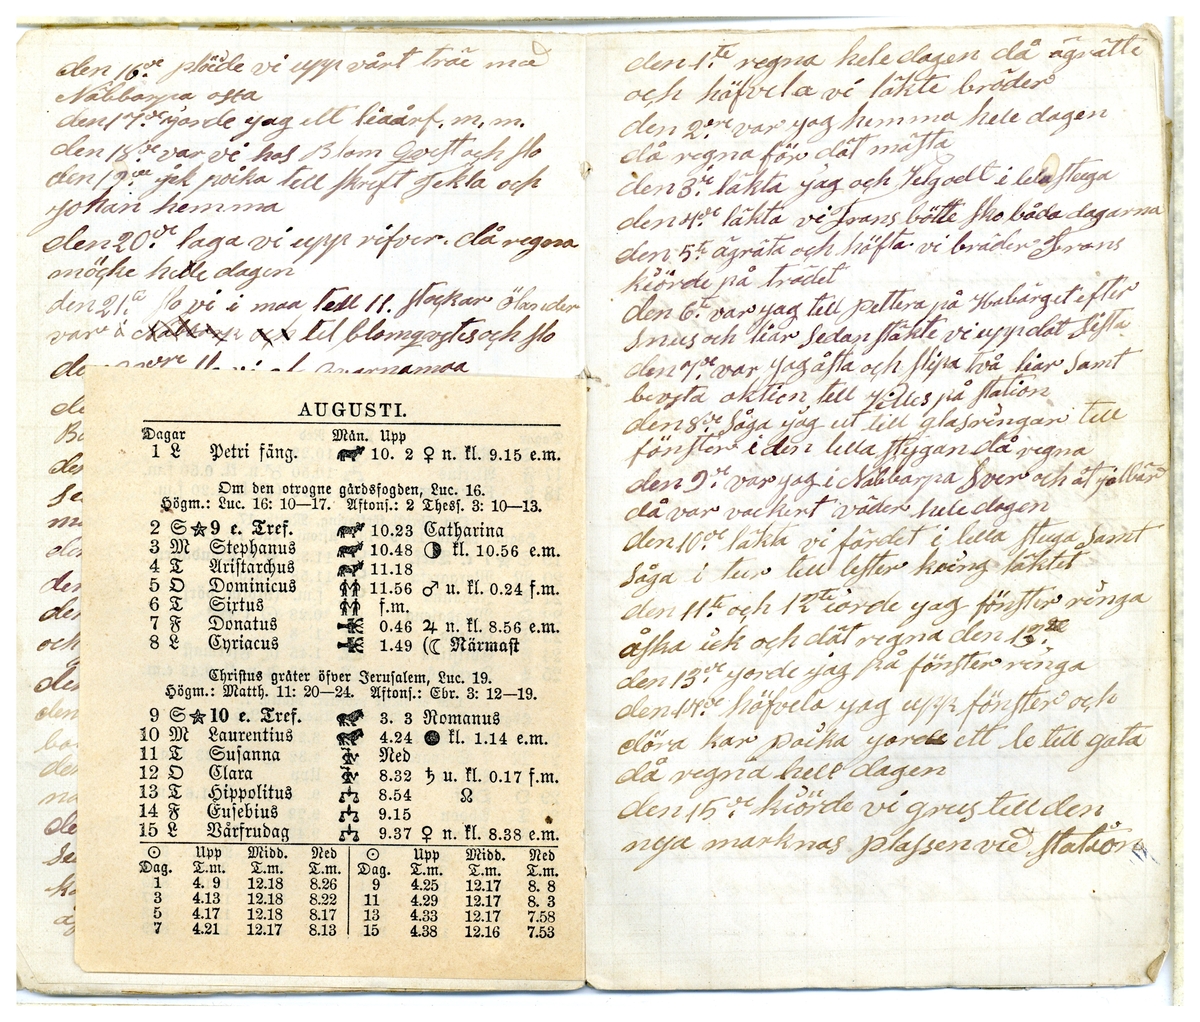 den 16de plöide vi upp vårt träe med
Nabbarpa osta
den 17de yorde yag ett liaårf. m. m.
den 18de var vi hos Blom Qvist och slo
den 19de yck poika till skrift Tekla och
Johan hemma
den 20de laga vi upp rifver. då regna
möcke hele dagen
den 21ta slo vi i maa till 11. stockar Ölander
var till blomqvstes och slo
AUGUSTI.
Dagar Mån. Upp
1 L Petri fäng. 10. 2 ♀ n. kl. 9.15 e.m.
Om den otrogne gårdsfogden, Luc. 16.
Högm.: Luc. 16: 10—17. Aftons.: 2 Thess. 3: 10—13.
2 S ★ 9 e. Tref. 10.23 Catharina
3 M Stephanus 10.48 ◑ kl. 10.56 e.m.
4 T Aristarchus 11.18
5 O Dominicus 11.56 ♂ u. kl. 0.24 f.m.
6 T Sixtus f.m.
7 F Donatus 0.46 ♃ n. kl. 8.56 e.m.
8 L Cyriacus 1.49 (☾ Närmast
Christus gråter öfver Jerusalem, Luc. 19.
Högm.: Matth. 11: 20—24. Aftons.: Ebr. 3: 12—19.
9 S ★ 10 e. Tref. 3. 3 Romanus
10 M Laurentius 4.24 ● kl. 1.14 e.m.
11 T Susanna Ned
12 O Clara 8.32 ♄ u. kl. 0.17 f.m.
13 T Hippolitus 8.54 ☊
14 F Eusebius 9.15
15 L Vårfrudag 9.37 ♀ n. kl. 8.38 e.m.
☉ Upp Midd. Ned ☉ Upp Midd. Ned
Dag. T.m. T.m. T.m. Dag. T.m. T.m. T.m.
1 4. 9 12.18 8.26 9 4.25 12.17 8. 8
3 4.13 12.18 8.22 11 4.29 12.17 8. 3
5 4.17 12.18 8.17 13 4.33 12.17 7.58
7 4.21 12.17 8.13 15 4.38 12.16 7.53
den 1te regna hele dagen då ägrätte
och häfvela vi läkte bröder
den 2dre var yag hemma hele dagen
då regna för dåt mästa
den 3de läkta yag och Helgodt i lela stuga
den 4de läkta vi Frans bötte sko båda dagarna
den 5te ägräta och häfta vi bräder Frans
kiörde på trädet
den 6te var yag till pettera på Habärget efter
snus och liar Sedan släkte vi upp dåt Sista
den 7de var yag åsta och slipa två liar samt
bevsta oktien till Hilles på station
den 8de Såga yag ut till glasringar till
fönster i den lilla stygan då regna
den 9de var yag i Nabbarpa Sver och åt
då var vackert väder hele dagen
den 10de läkta vi färdet i lilla stuga samt
Såga i tur till lister king läktet
den 11te och 12te iorde yag fönster ringa
åska iek och dät regna den 12te
den 13de yorde yag på fönster ringa
den 14de höfvela yag upp fönster och
döra kar poika yorde ett le till gata
då regna hele dagen
den 15de kiörde vi grus till den
nya marknas plassen vid station